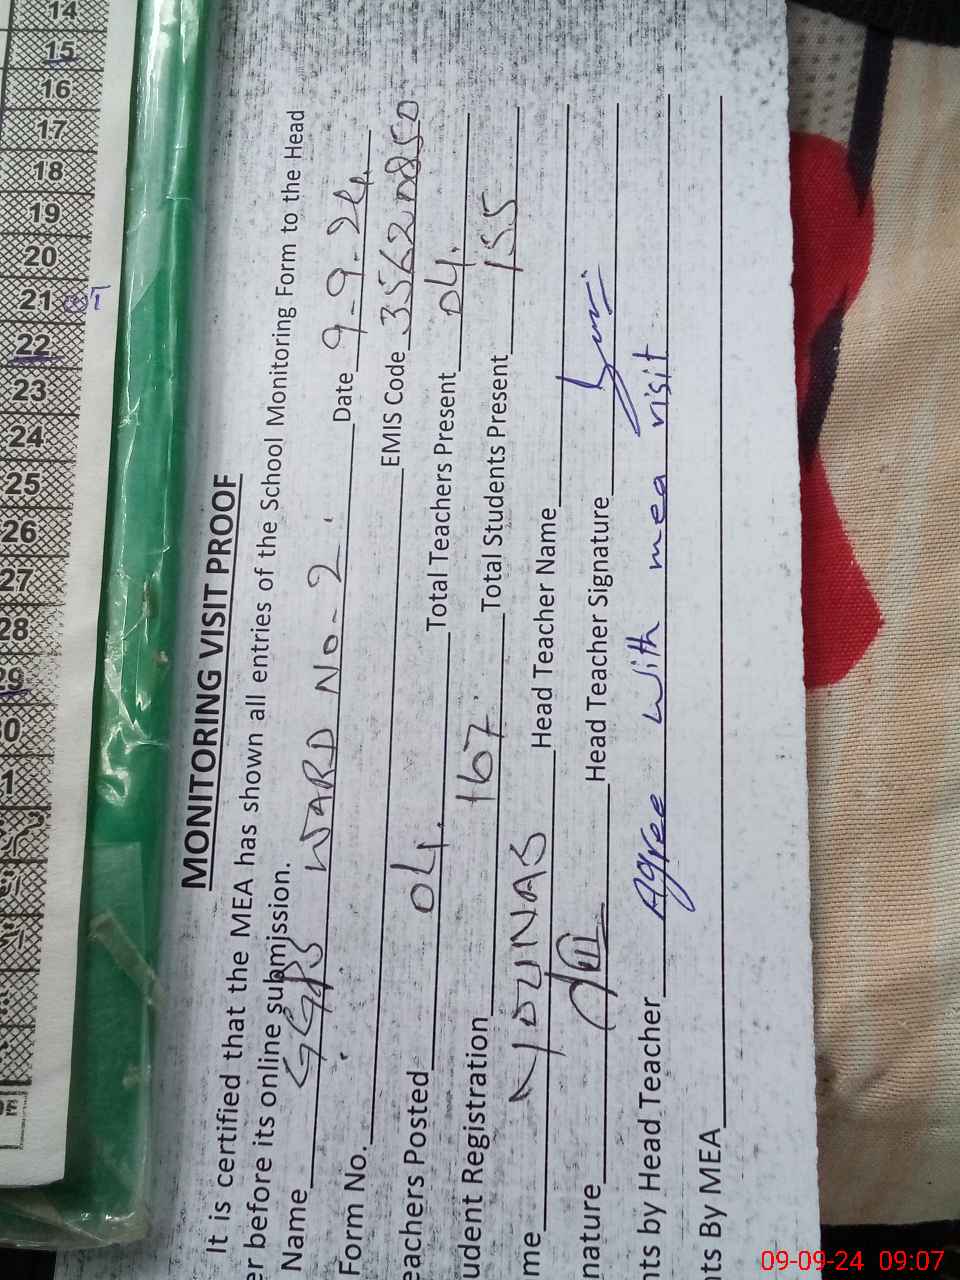 14
15
16
17
18
19
20
21
22
23
24
25
26
27
28
29
30
MONITORING VISIT PROOF
It is certified that the MEA has shown all entries of the School Monitoring Form to the Head
er before its online submission.
Name GGPS WARD NO-2 Date 9-9-24.
Form No. EMIS Code
eachers Posted 04. Total Teachers Present 04.
udent Registration 167 Total Students Present 155
me YOUNAS Head Teacher Name
nature Head Teacher Signature
nts by Head Teacher Agree with mea visit
ts By MEA
09-09-24 09:07